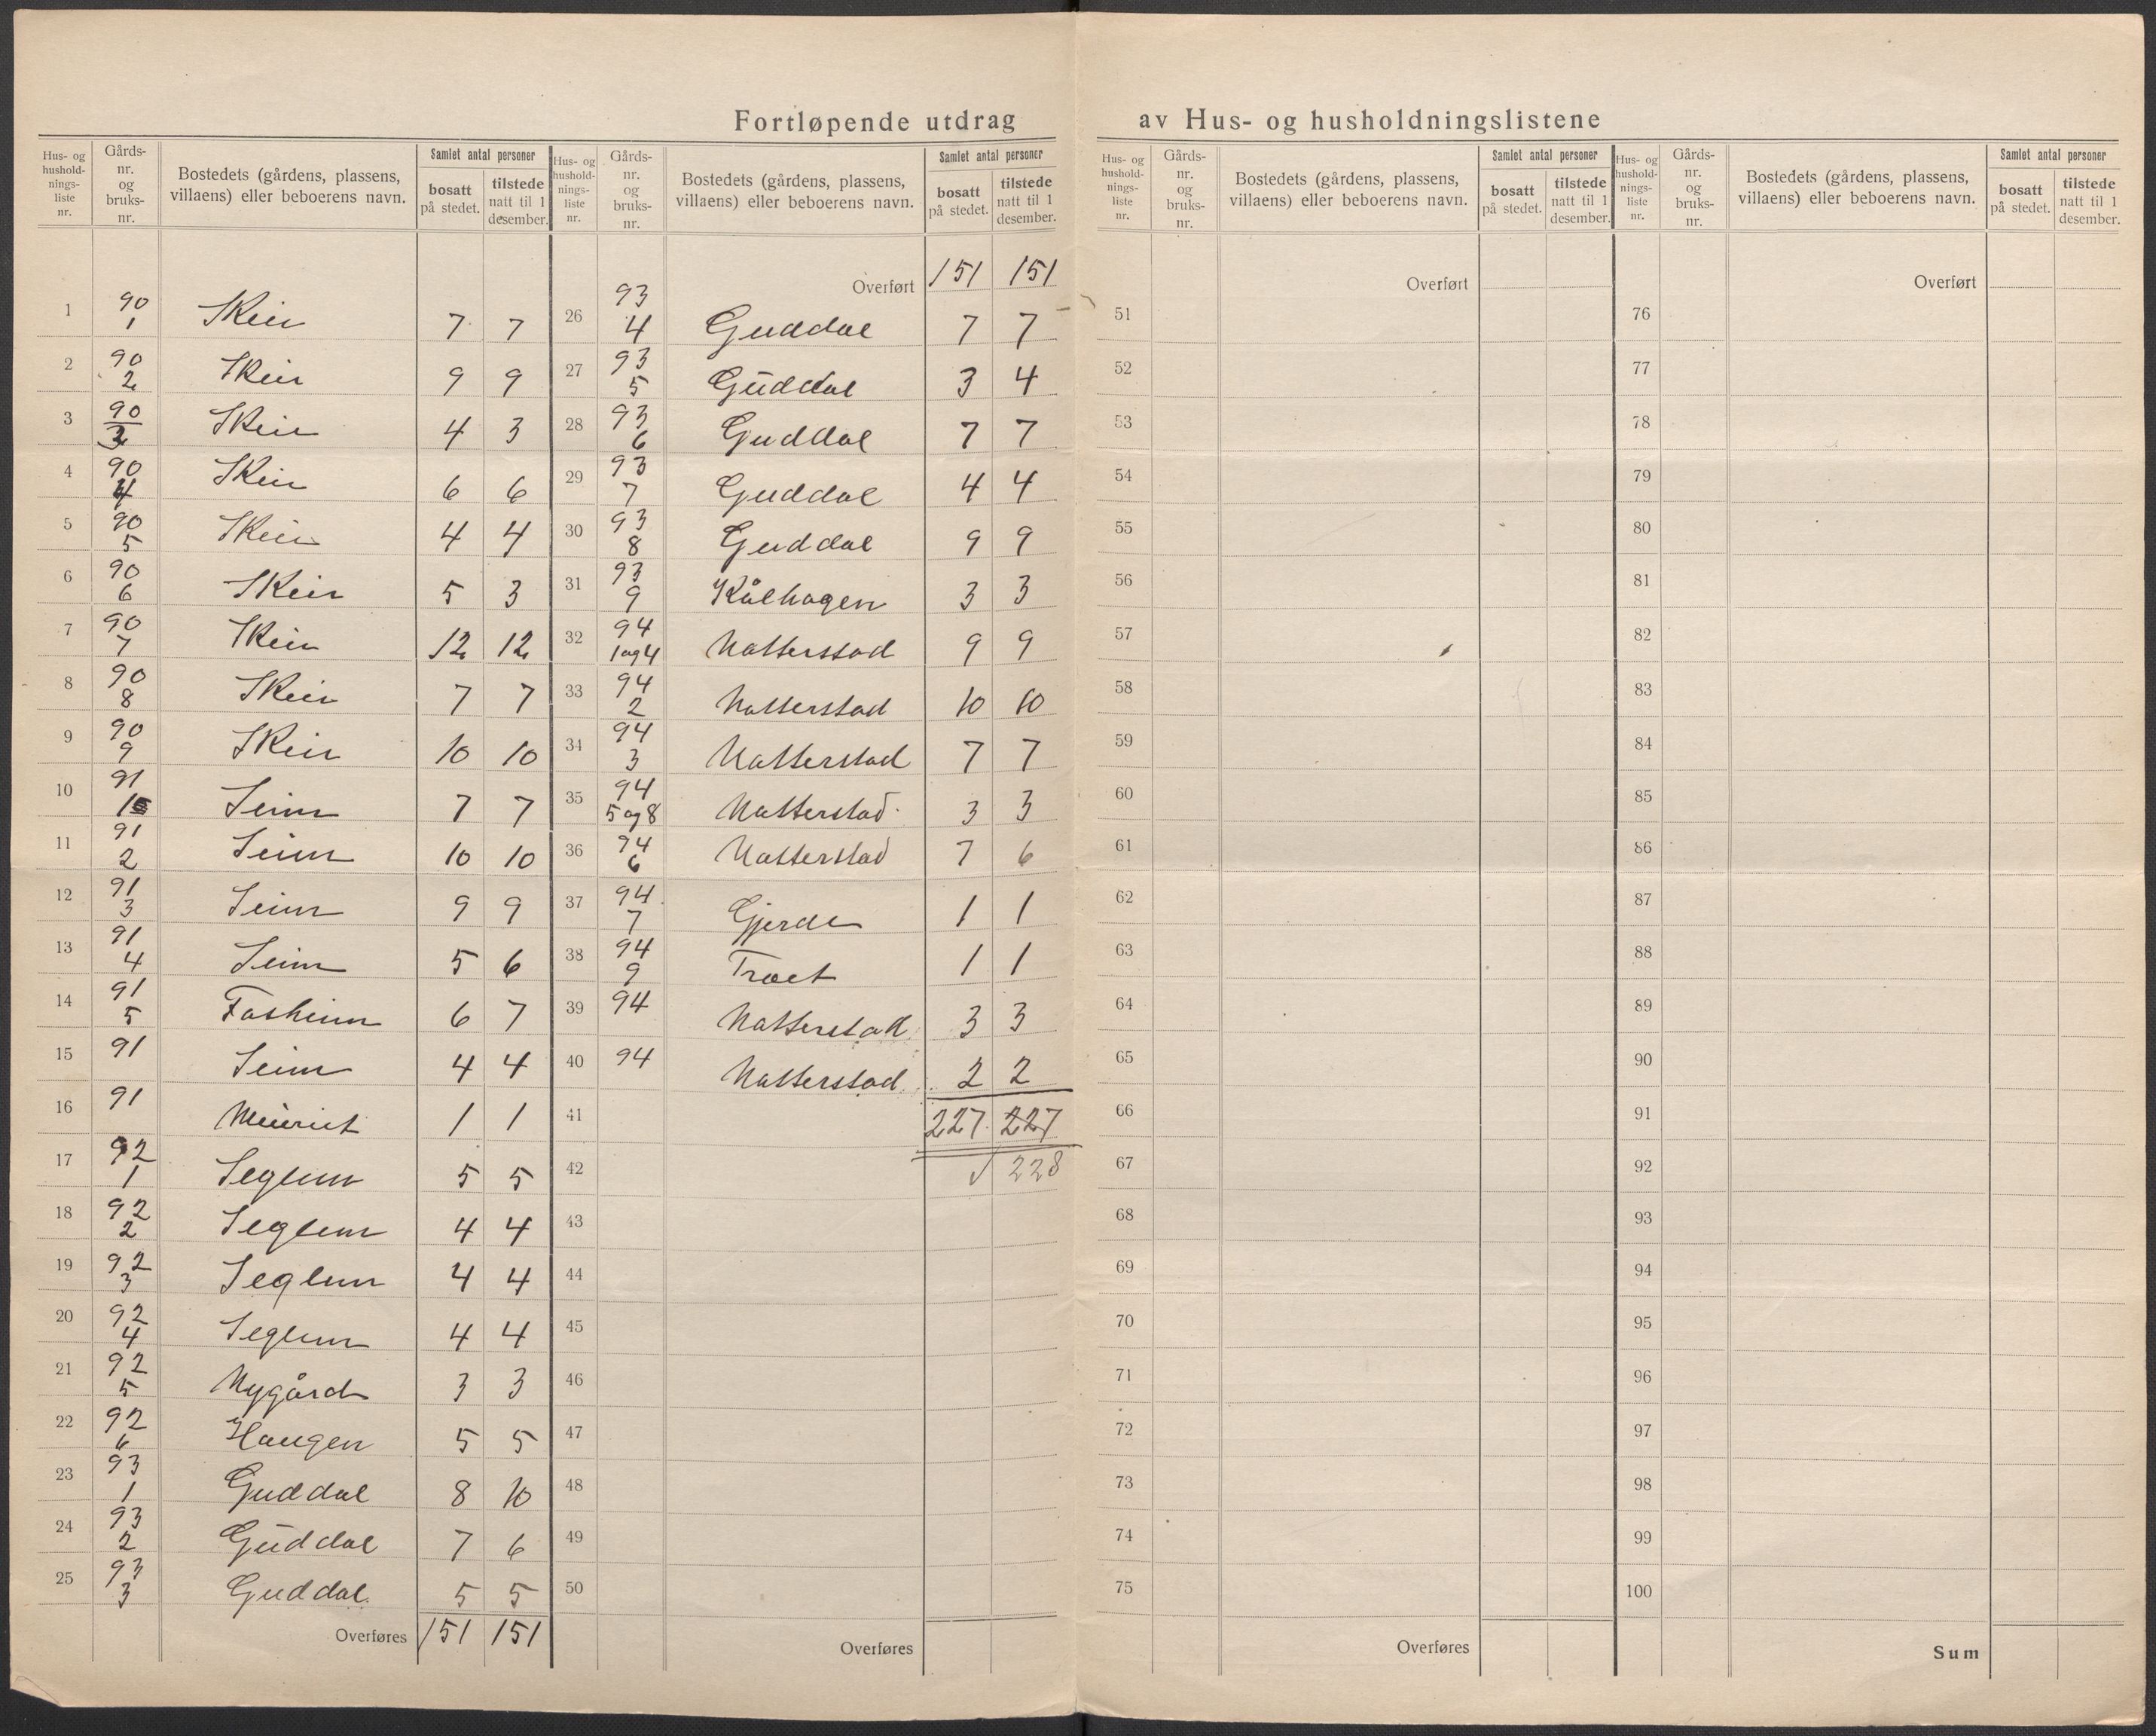 Fortløpende utdrag av Hus- og husholdningslistene
Hus- og husholdnings-liste nr. | Gårds-nr. og bruks-nr. | Bostedets (gårdens, plassens, villaens) eller beboerens navn. | Samlet antal personer | bosatt på stedet. | tilstede natt til 1 desember.
1 90 1 Skeie 7 7
2 90 2 Skeie 9 9
3 90 3 Skeie 4 3
4 90 4 Skeie 6 6
5 90 5 Skeie 4 4
6 90 6 Skeie 5 3
7 90 7 Skeie 12 12
8 90 8 Skeie 7 7
9 90 9 Skeie 10 10
10 91 1 Seim 7 7
11 91 2 Seim 10 10
12 91 3 Seim 9 9
13 91 4 Seim 5 6
14 91 5 Fosheim 6 7
15 91 Seim 4 4
16 91 Meieriet 1 1
17 92 1 Seglem 5 5
18 92 2 Seglem 4 4
19 92 3 Seglem 4 4
20 92 4 Seglem 4 4
21 92 5 Nygård 3 3
22 92 6 Haugen 5 5
23 93 1 Guddal 8 10
24 93 2 Guddal 7 6
25 93 3 Guddal 5 5
Overføres 151 151
Hus- og husholdnings-liste nr. | Gårds-nr. og bruks-nr. | Bostedets (gårdens, plassens, villaens) eller beboerens navn. | Samlet antal personer | bosatt på stedet. | tilstede natt til 1 desember.
Overført 151 151
26 93 4 Guddal 7 7
27 93 5 Guddal 3 4
28 93 6 Guddal 7 7
29 93 7 Guddal 4 4
30 93 8 Guddal 9 9
31 93 9 Kålhagen 3 3
32 94 1 og 4 Natterstad 9 9
33 94 2 Natterstad 10 10
34 94 3 Natterstad 7 7
35 94 5 og 8 Natterstad 3 3
36 94 6 Natterstad 7 6
37 94 7 Gjerde 1 1
38 94 9 Træet 1 1
39 94 Natterstad 3 3
40 94 Natterstad 2 2
41 227 227
42 √ 228
43
44
45
46
47
48
49
50
Overføres
Hus- og husholdnings-liste nr. | Gårds-nr. og bruks-nr. | Bostedets (gårdens, plassens, villaens) eller beboerens navn. | Samlet antal personer | bosatt på stedet. | tilstede natt til 1 desember.
Overført
51
52
53
54
55
56
57
58
59
60
61
62
63
64
65
66
67
68
69
70
71
72
73
74
75
Overføres
Hus- og husholdnings-liste nr. | Gårds-nr. og bruks-nr. | Bostedets (gårdens, plassens, villaens) eller beboerens navn. | Samlet antal personer | bosatt på stedet. | tilstede natt til 1 desember.
Overført
76
77
78
79
80
81
82
83
84
85
86
87
88
89
90
91
92
93
94
95
96
97
98
99
100
Sum